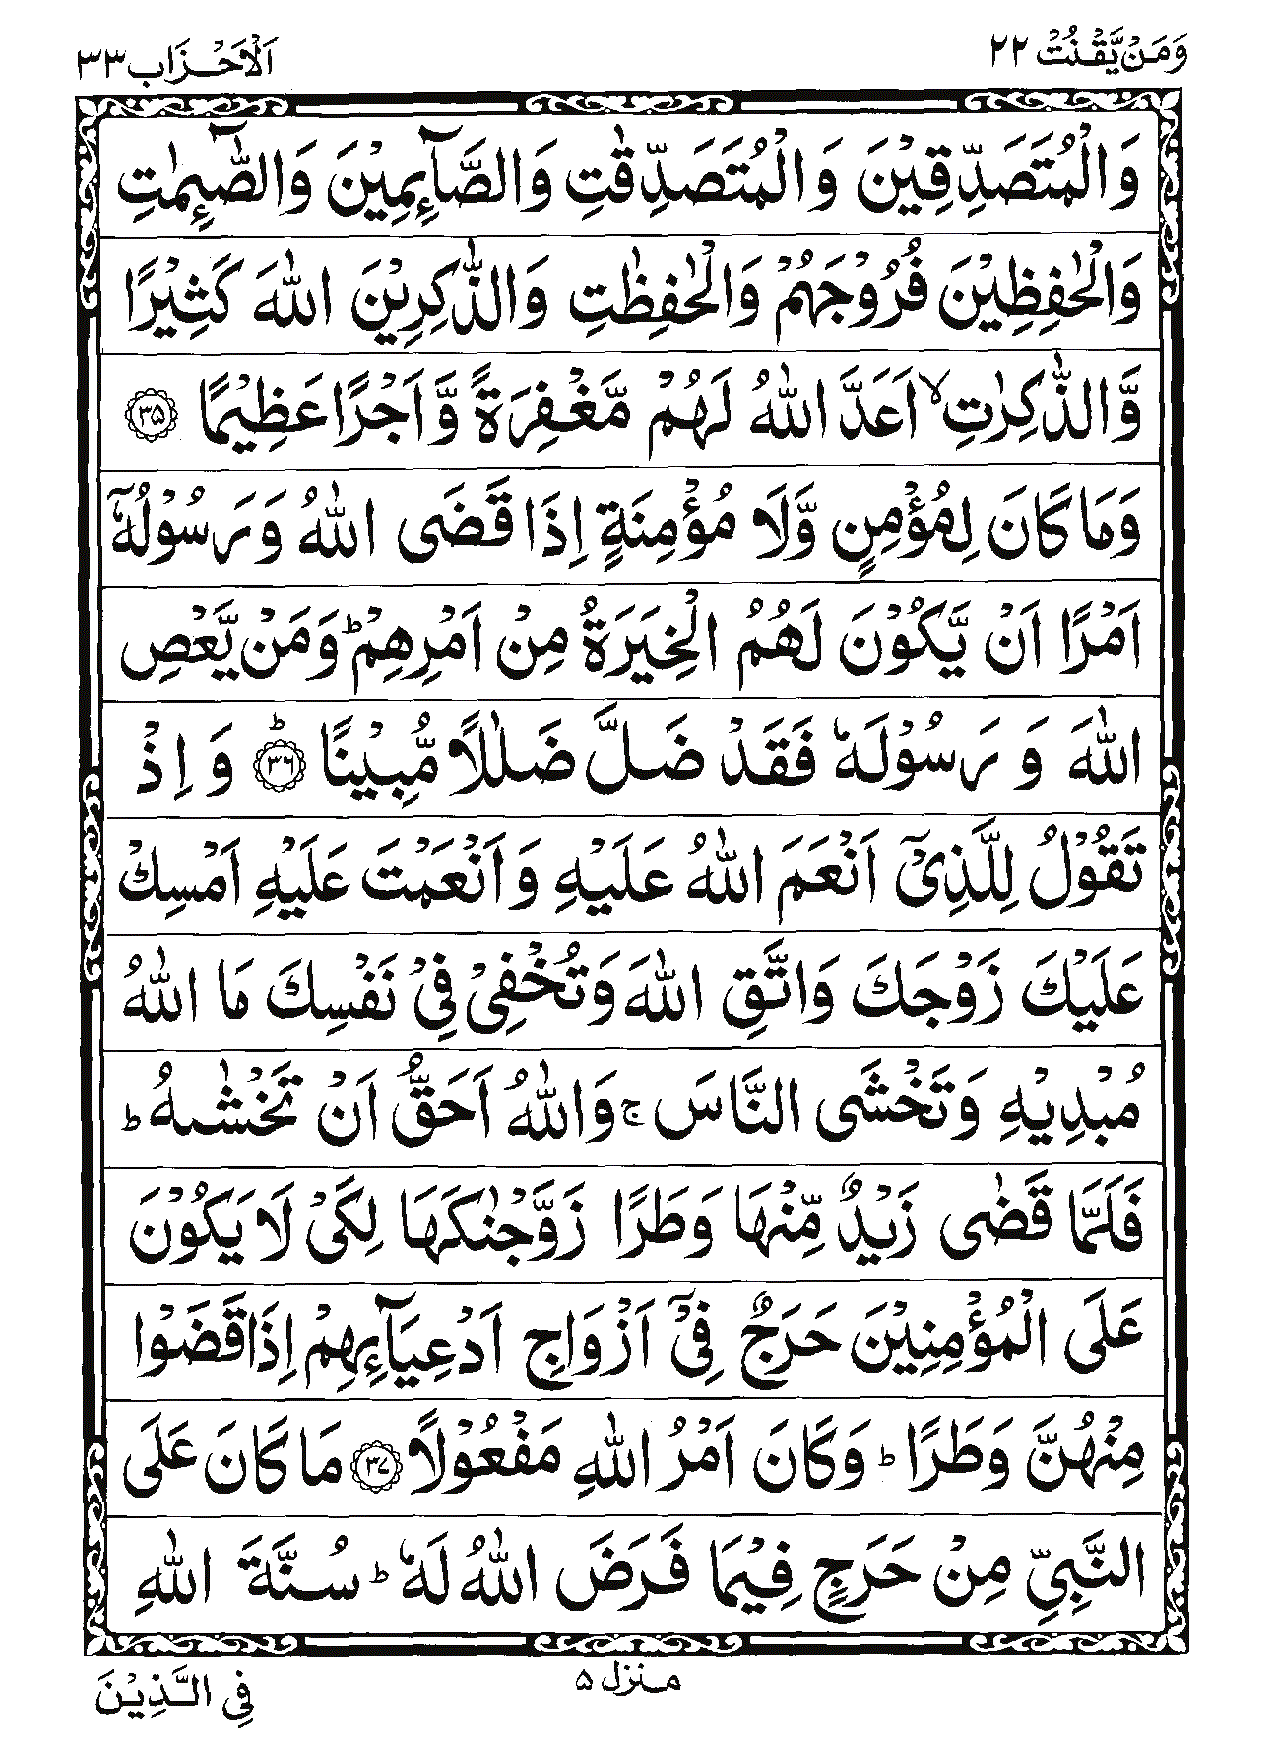 وَمَنْ يَّقْنُتْ ٢٢
اَلْاَحْزَاب ٣٣
وَالْمُتَصَدِّقِيْنَ وَالْمُتَصَدِّقٰتِ وَالصَّآئِمِيْنَ وَالصّٰٓئِمٰتِ
وَالْحٰفِظِيْنَ فُرُوْجَهُمْ وَالْحٰفِظٰتِ وَالذّٰكِرِيْنَ اللّٰهَ كَثِيْرًا
وَّالذّٰكِرٰتِ ۙ اَعَدَّ اللّٰهُ لَهُمْ مَّغْفِرَةً وَّاَجْرًا عَظِيْمًا ۝٣٥
وَمَا كَانَ لِمُؤْمِنٍ وَّلَا مُؤْمِنَةٍ اِذَا قَضَى اللّٰهُ وَرَسُوْلُهٗٓ
اَمْرًا اَنْ يَّكُوْنَ لَهُمُ الْخِيَرَةُ مِنْ اَمْرِهِمْ ؕ وَمَنْ يَّعْصِ
اللّٰهَ وَرَسُوْلَهٗ فَقَدْ ضَلَّ ضَلٰلًا مُّبِيْنًا ؕ۝٣٦ وَاِذْ
تَقُوْلُ لِلَّذِيْٓ اَنْعَمَ اللّٰهُ عَلَيْهِ وَاَنْعَمْتَ عَلَيْهِ اَمْسِكْ
عَلَيْكَ زَوْجَكَ وَاتَّقِ اللّٰهَ وَتُخْفِيْ فِيْ نَفْسِكَ مَا اللّٰهُ
مُبْدِيْهِ وَتَخْشَى النَّاسَ ۚ وَاللّٰهُ اَحَقُّ اَنْ تَخْشٰىهُ ؕ
فَلَمَّا قَضٰى زَيْدٌ مِّنْهَا وَطَرًا زَوَّجْنٰكَهَا لِكَيْ لَا يَكُوْنَ
عَلَى الْمُؤْمِنِيْنَ حَرَجٌ فِيْٓ اَزْوَاجِ اَدْعِيَآئِهِمْ اِذَا قَضَوْا
مِنْهُنَّ وَطَرًا ؕ وَكَانَ اَمْرُ اللّٰهِ مَفْعُوْلًا ۝٣٧ مَا كَانَ عَلَى
النَّبِيِّ مِنْ حَرَجٍ فِيْمَا فَرَضَ اللّٰهُ لَهٗ ؕ سُنَّةَ اللّٰهِ
منزل ٥
فِي الَّذِيْنَ